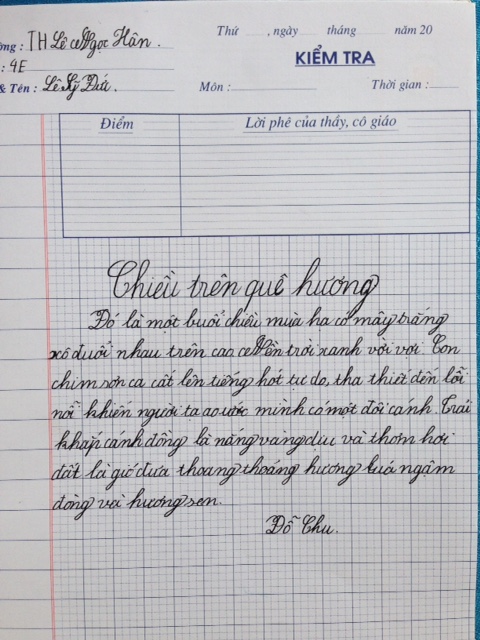 Thứ ..... , ngày ..... tháng ..... năm 20
ờng : TH Lê Ngọc Hân.
KIỂM TRA
: 4E
& Tên : Lê Sỹ Đức.
Môn : ..... Thời gian : .....
Điểm Lời phê của thầy, cô giáo
Chiều trên quê hương
Đó là một buổi chiều mùa hạ có mây trắng
xô đuổi nhau trên cao. Nền trời xanh vời vợi. Con
chim sơn ca cất lên tiếng hót tự do, tha thiết đến lỗi
nỗi khiến người ta ao ước mình có một đôi cánh. Trải
khắp cánh đồng là nắng vàng dịu và thơm hơi
đất là gió đưa thoang thoảng hương luá ngậm
đòng và hương sen.
Đỗ Chu.